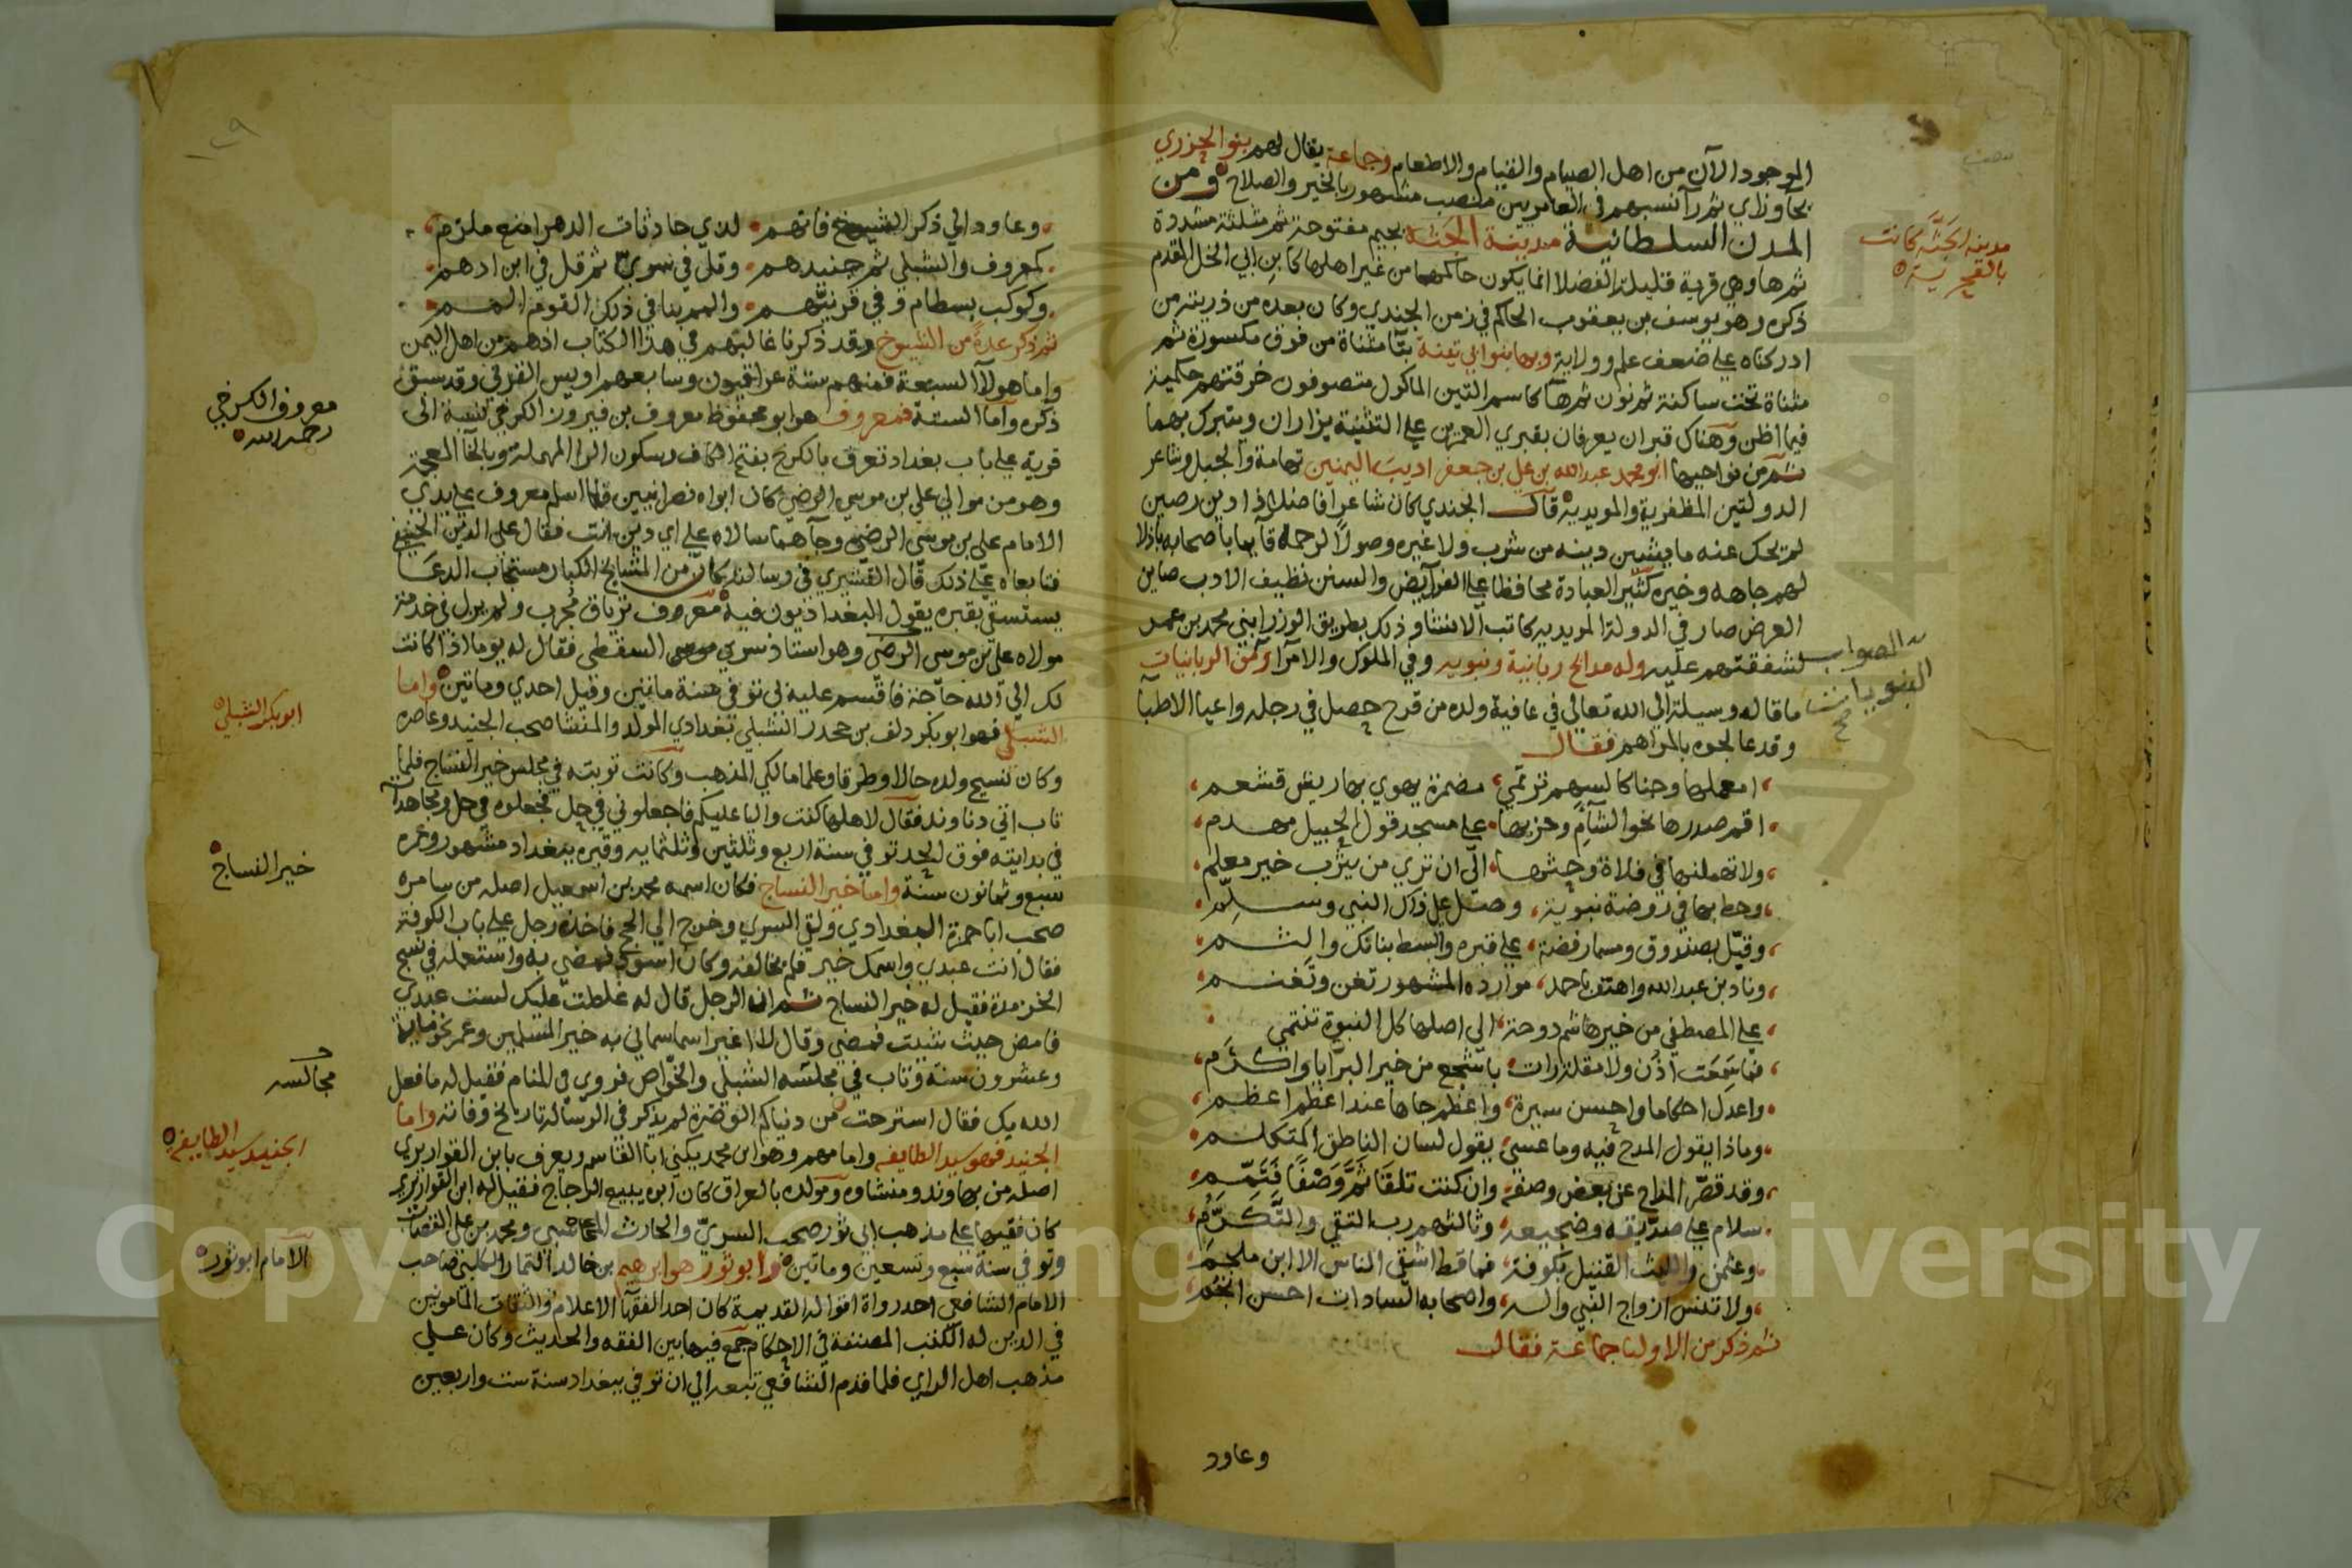 الموجود الآن من اهل الصيام والقيام والاطعام وجماعة يقال لهم بنو الجزري
ثم رآ نسبهم في العامريين منصب مشهور بالخير والصلاح ومن
المدن السلطانية مدينة الجثة بجيم مفتوحة ثم مثلثة مشددة
ثم هاوهي قرية قليلة الفضلا انما يكون حاكمها من غير اهلها كابن ابي الخل المقدم
ذكره وهو يوسف بن يعقوب الحاكم في زمن الجندي وكان بعده من ذريته من
ادركناه على ضعف علم وولاية وبها بنو ابي تينة بتا مثناة من فوق مكسورة ثم
مثناة تحت ساكنة ثم نون ثم ها كاسم التين الماكول متصوفون خرقتهم حكمية
فيما اظن وهناك قبران يعرفان بقبري العمرين على التثنية يزاران ويتبرك بهما
ثم من نواحيها ابو محمد عبد الله بن علي بن جعفر اديب اليمنين تهامة والجبل وشاعر
الدولتين المظفرية والمويدية قال الجندي كان شاعرا فاضلا ذا دين رصين
لم يحك عنه ما يشين دينه من شرب ولا غيره وصولا لرحمه قآيما باصحابه باذلا
لهم جاهه وخيره كثير العبادة محافظا على الفرآيض والسنن نظيف الادب صاين
العرض صار في الدولة المويديه كاتب الانشا وذلك بطريق الوزر ابني محمد بن عمر
لشفقتهم عليه وله مدايح ربانية ونبويه وفي الملوك والامرا ومن الربانيات
ما قاله وسيلة الى الله تعالى في عافية ولده من قرح حصل في رجله واعيا الاطبا
وقد عالجوه بالمراهم فقال
امعملها وجنا كالسهم ترتمي مضمرة يهوي بها ريش قشعم
اقم صدرها نحو الشآم وحز بها على مسجد قول الجبيل مهدم
ولا تهملنها في فلاة وحثها الى ان تري من يثرب خير معلم
وحط بها في روضة نبوية وصل على ذاك النبي وسلم
وقبل بصندوق ومسمار فضة على قبره وابسط بنانك والثم
وناد بن عبد الله واهتف باحمد موارده المشهور تغن وتغنم
على المصطفى من خير هاشم دوحة الى اصلها كل النبوة تنتمي
فما سمعت اذن ولا مقلة رات باشجع من خير البرايا واكرم
واعدل احكاما واحسن سيرة واعظم جاها عند اعظم اعظم
وماذا يقول المدح فيه وما عسى يقول لسان الناطق المتكلم
وقد قصر المداح عن بعض وصفه وان كنت تلقا ثم وصفا فتمم
سلام على صديقه وضجيعه وثالثهم رب التقى والتكرم
وعثمن والليث القتيل بكوفة فما قط اشقى الناس الا ابن ملجم
ولا تنس ازواج النبي واله واصحابه السادات احسن انجم
ثم ذكر من الاوليا جماعة فقال
وعاود
مدينه الجثة كانت
بالقحرية
الصواب
النبويات
صح
١٢٩
وعاود الى ذكر الشيوخ فانهم لدي حادثات الدهر امنع ملزم
كمعروف والشبلي ثم جنيدهم وقل في سري ثم قل في ابن ادهم
وكوكب بسطام وفي قرنيهم والمم بنا في ذلك القوم المم
ثم ذكر عدة من الشيوخ وقد ذكرنا غالبهم في هذا الكتاب اذ هم من اهل اليمن
واما هولآ السبعة فمنهم ستة عراقيون وسابعهم اويس القرني وقد سبق
ذكره واما الستة فمعروف هو ابو محفوظ معروف بن فيروز الكرخي نسبة الى
قرية على باب بغداد تعرف بالكرخ بفتح الكاف وسكون الرا المهملة وبالخا المعجمة
وهو من موالي علي بن موسى الرضى كان ابواه نصرانيين قلما اسلم معروف على يدي
الامام علي بن موسى الرضى وجآهما سالاه على اي دين انت فقال على الدين الحنيفي
فتابعاه على ذلك قال القشيري في رسالته كان من المشايخ الكبار مستجاب الدعا
يستسقى بقبره يقول البغداذيون فيه معروف ترياق مجرب ولم يزل في خدمة
مولاه علي بن موسى الرضي وهو استاذ سري السقطي فقال له يوما اذا كانت
لك الي الله حاجة فاقسم عليه بي توفي سنة مائتين وقيل احدي ومائتين واما
الشبلي فهو ابو بكر دلف بن جحدر الشبلي بغدادي المولد والمنشا صحب الجنيد وعاصره
وكان نسيج وحده حالا وظرفا وعلما مالكي المذهب وكانت توبته في مجلس خير النساج فلما
تاب اتى دناوند فقال لاهلها كنت واليا عليكم فاجعلوني في حل فجعلوه في حل ومجاهداته
في بدايته فوق الحد توفي سنة اربع وثلثين وثلثمايه وقبره ببغداد مشهور وعمره
سبع وثمانون سنة واما خير النساج فكان اسمه محمد بن اسمعيل اصله من سامره
صحب ابا حمزة البغدادي ولقي السري وخرج الى الحج فاخذه رجل على باب الكوفة
فقال انت عبدي واسمك خير فلم يخالفه وكان اسود فمضى به واستعمله في نسج
الخز مدة فقيل له خير النساج ثم ان الرجل قال له غلطت عليك لست عبدي
فامض حيث شيت فمضى وقال لا اغير اسما سماني به خير المسلمين وعمر نحو ماية
وعشرون سنة وتاب في مجلسه الشبلي والخواص فروي في المنام فقيل له ما فعل
الله بك فقال استرحت من دنياكم القذرة لم يذكر في الرسالة تاريخ وفاته واما
الجنيد فهو سيد الطايفه وامامهم وهو ابن محمد يكنى ابا القاسم ويعرف بابن القواريري
اصله من نهاوند ومنشاوه ومولده بالعراق كان ابوه يبيع الزجاج فقيل له ابن القواريري
كان فقيها على مذهب ابي ثور صحب السري والحارث المحاسبي ومحمد بن علي القصاب
وتوفي سنة سبع وتسعين ومائتين وابو ثور هو ابرهيم بن خالد الكلبي صاحب
الامام الشافعي احد رواة اقواله القديمة كان احد الفقها الاعلام والثقات المامونين
في الدين له الكتب المصنفة في الاحكام جمع فيها بين الفقه والحديث وكان على
مذهب اهل الراي فلما قدم الشافعي تبعه الى ان توفي ببغداد سنة ست واربعين
معروف الكرخي
رحمه الله
ابو بكر الشبلي
خير النساج
مجالسه
الجنيد سيد الطايفه
الامام ابو ثور
Copyright © King Saud University